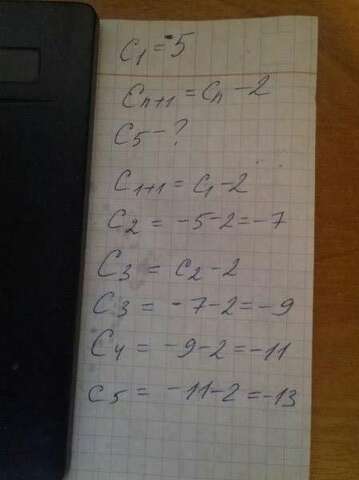 C1 = -5
Cn+1 = Cn - 2
C5 - ?
C1+1 = C1 - 2
C2 = -5-2 = -7
C3 = C2 - 2
C3 = -7-2 = -9
C4 = -9-2 = -11
C5 = -11-2 = -13